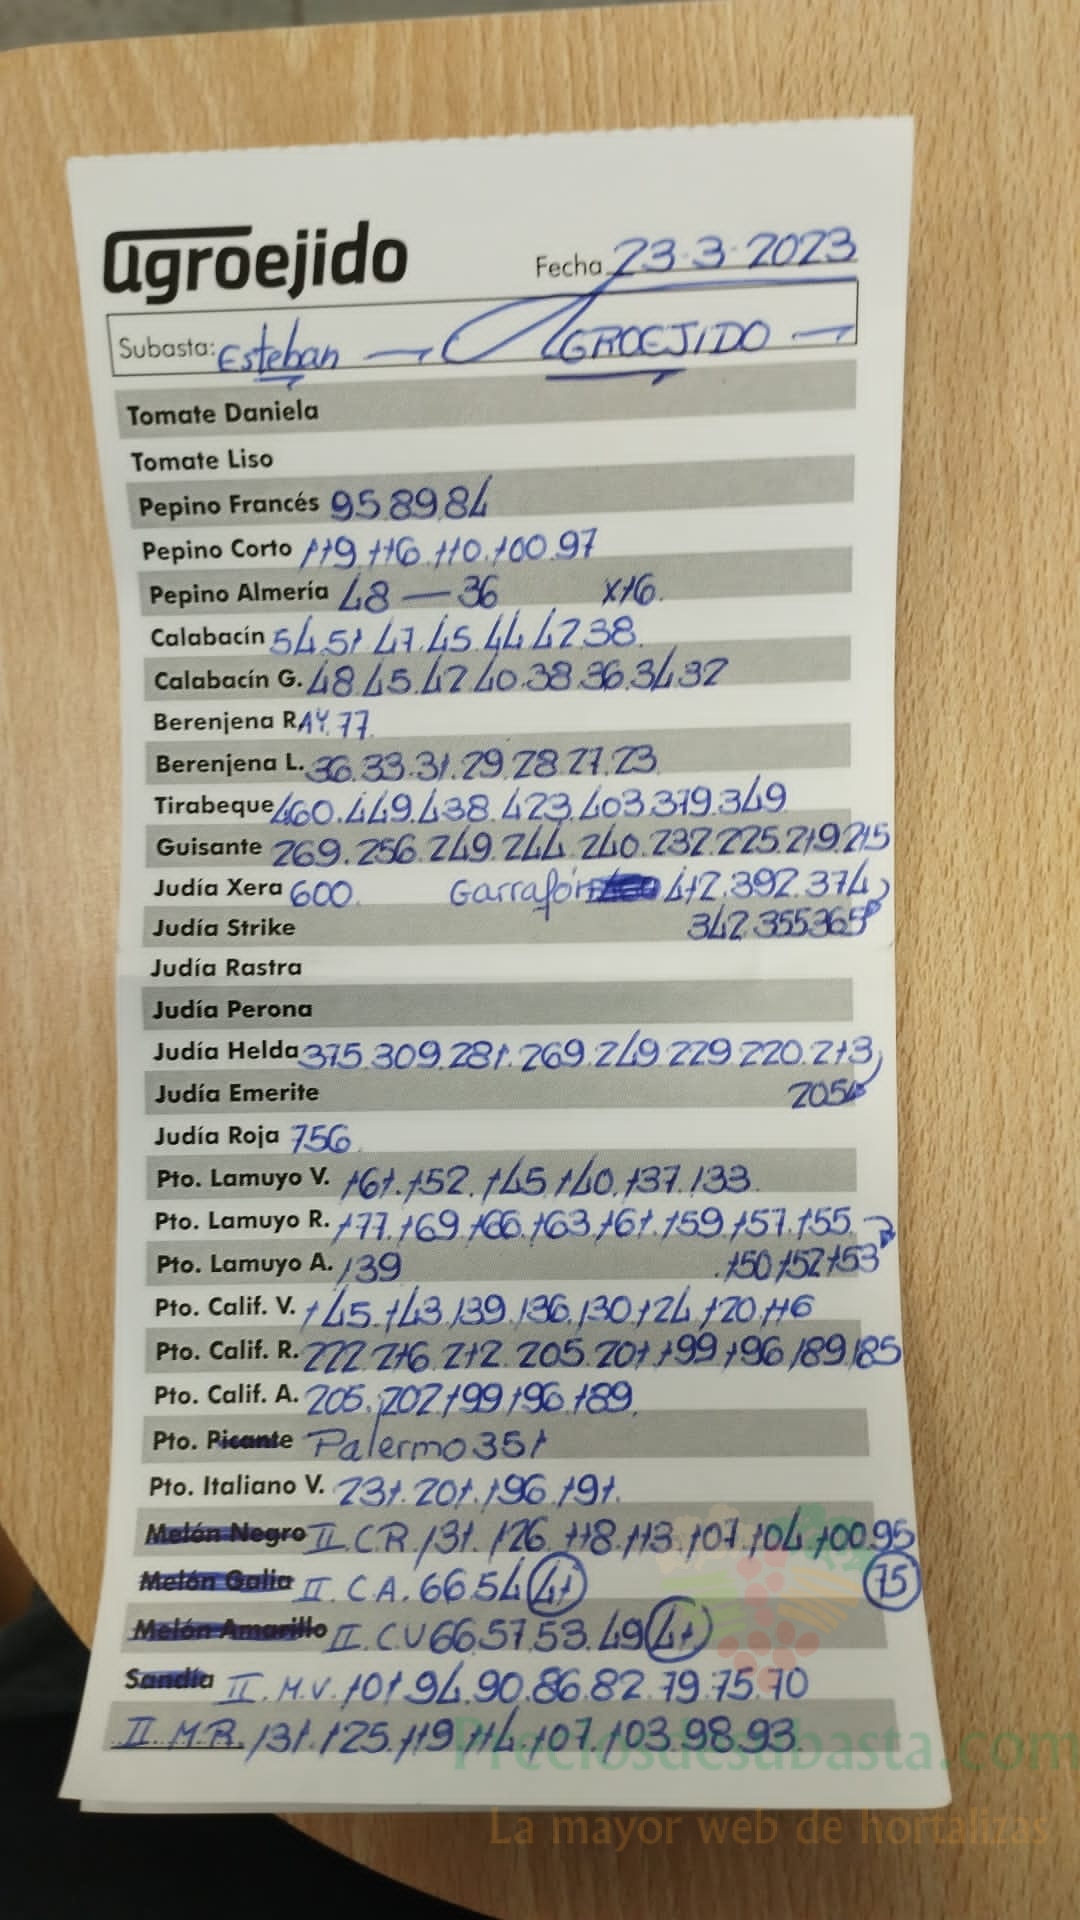 agroejido
Fecha 23-3-2023
Subasta: Esteban — AGROEJIDO —
Tomate Daniela
Tomate Liso
Pepino Francés 95.89.84
Pepino Corto 119.116.110.100.97
Pepino Almería 48 — 36 x16.
Calabacín 54.51.47.45.44.42.38.
Calabacín G. 48.45.42.40.38.36.34.32
Berenjena RAY. 77.
Berenjena L. 36.33.31.29.28.27.23
Tirabeque 460.449.438.423.403.379.349
Guisante 269.256.249.244.240.232.225.219.215
Judía Xera 600. Garrafón 412.392.374
Judía Strike 342.355365
Judía Rastra
Judía Perona
Judía Helda 375.309.281.269.249.229.220.213
Judía Emerite 205
Judía Roja 756.
Pto. Lamuyo V. 161.152.145.140.137.133.
Pto. Lamuyo R. 177.169.166.163.161.159.157.155
Pto. Lamuyo A. 139 .150.152153
Pto. Calif. V. 145.143.139.136.130.124.120.116
Pto. Calif. R. 222.216.212.205.201.199.196.189.185
Pto. Calif. A. 205.202.199.196.189.
Pto. Picante Palermo 351
Pto. Italiano V. 231.201.196.191.
Melón Negro II.C.R. 131.126.118.113.107.104.100.95
Melón Galia II.C.A. 66.54 41 75
Melón Amarillo II.C.V 66.57.53.49 41
Sandía II.M.V. 101.94.90.86.82.79.75.70
II.M.R. 131.125.119.114.107.103.98.93.
Preciosdesubasta.com
La mayor web de hortalizas